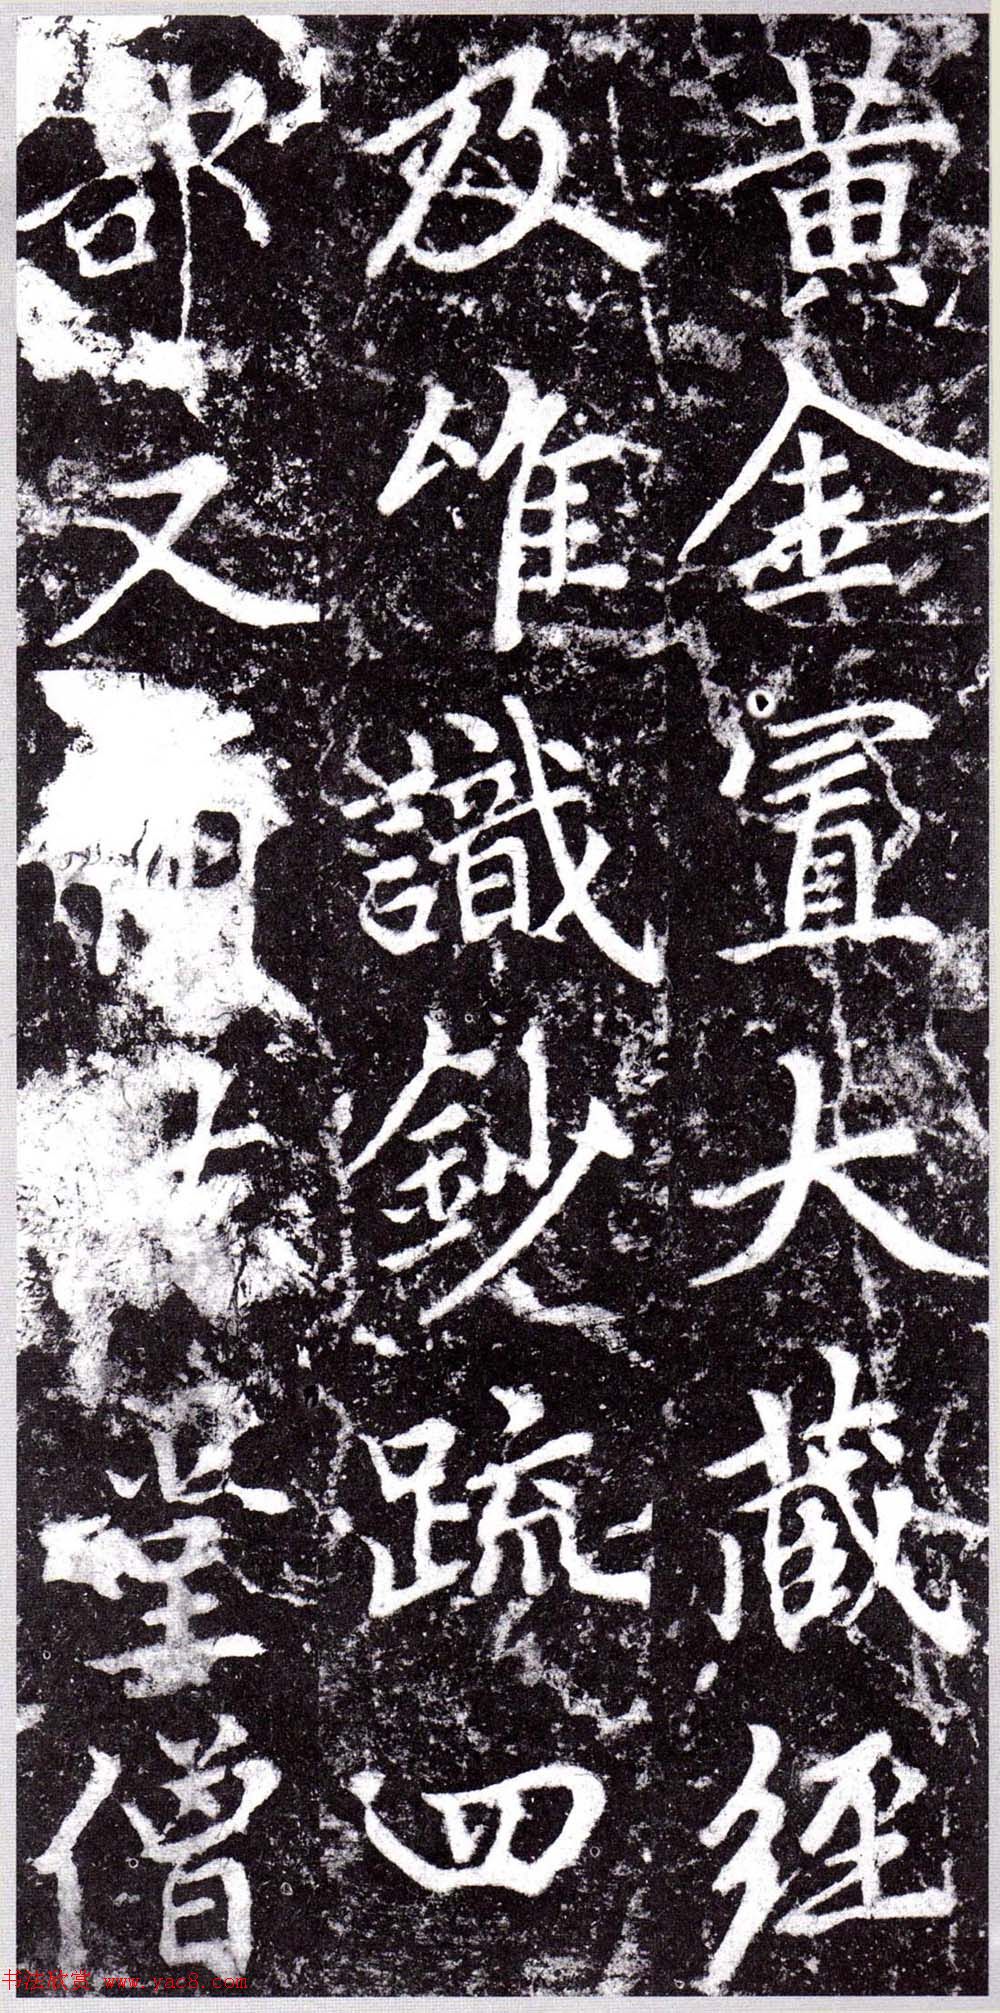 黄金置大藏經
及唯識鈔疏四
部又堂僧
书法欣赏 www.yac8.com